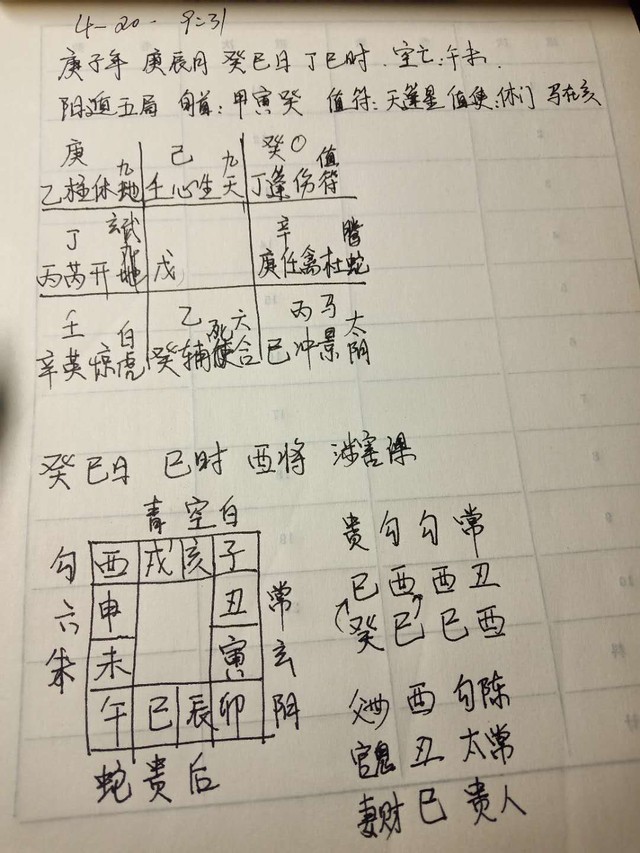 4-20-9:31
庚子年 庚辰月 癸巳日 丁巳时. 空亡:午未.
阳遁五局 旬首:甲寅癸 值符:天蓬星 值使:休门 马在亥
庚 九 己 九 癸〇 值
乙柱休地 壬心生天 丁蓬伤符
丁 玄武 辛 螣
丙芮开 戊 庚任禽杜蛇
壬 白 乙 六 丙马 太
辛英惊虎 癸辅死合 己冲景阴
癸巳日 巳时 酉将 涉害课
青空白
勾 酉 戌 亥 子
六 申 丑 常
朱 未 寅 玄
午 巳 辰 卯 阴
蛇贵后
贵 勾 勾 常
巳 酉 酉 丑
癸 巳 巳 酉
父母 酉 勾陈
官鬼 丑 太常
妻财 巳 贵人